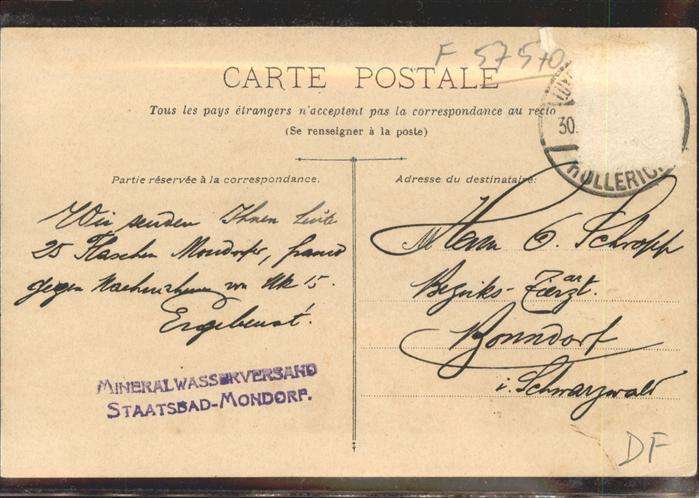 F 57570
CARTE POSTALE
Tous les pays étrangers n'acceptent pas la correspondance au recto
(Se renseigner à la poste)
30.
HOLLERICH
Partie réservée à la correspondance.
Wir senden Ihnen heute
25 Flaschen Mondorfer, franco
gegen Nachnahme von Mk 15.
Ergebenst!
MINERALWASSERVERSAND
STAATSBAD-MONDORF.
Adresse du destinataire:
Herrn O. Schropp
Bezirks-Tierarzt.
Bonndorf
i. Schwarzwald
DF